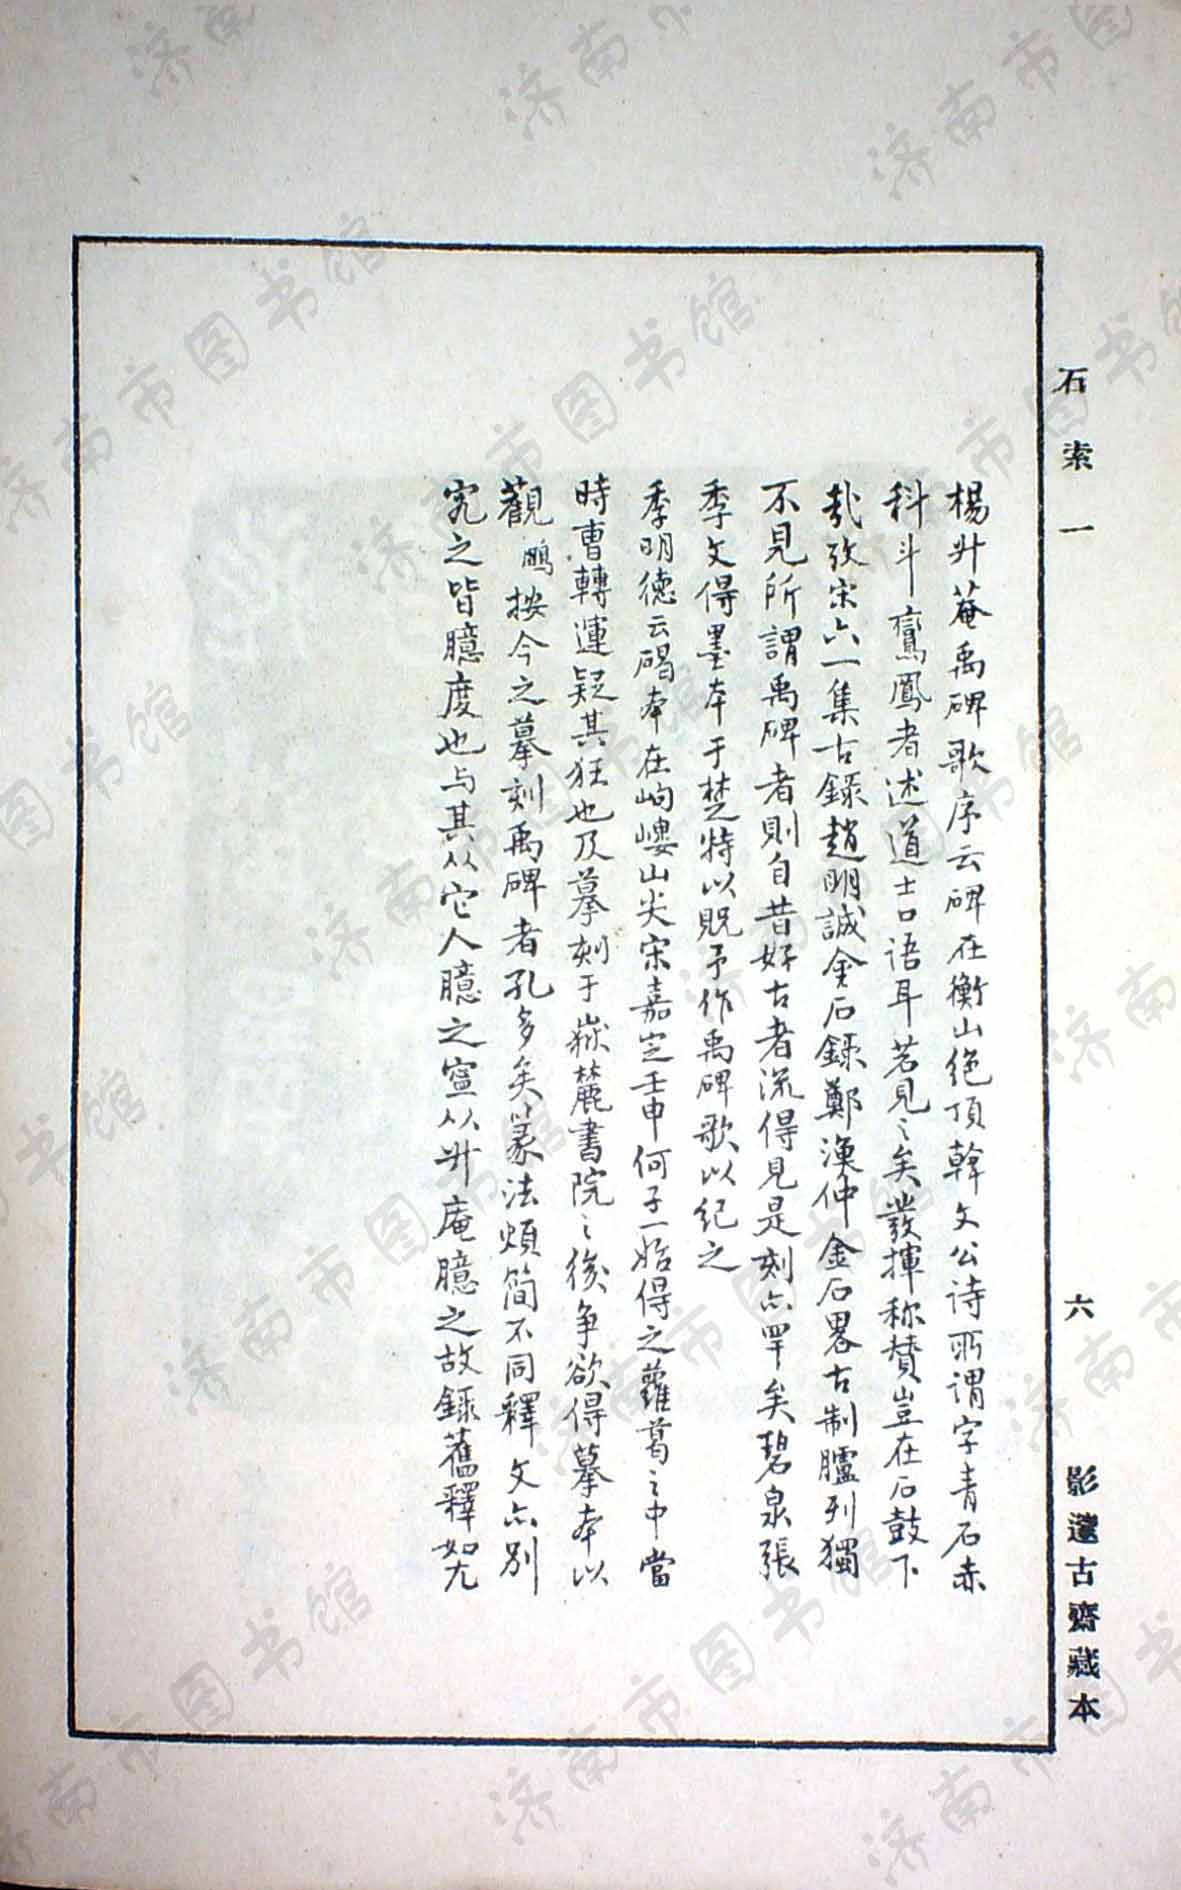 石索一 六 影遺古齋藏本
楊升菴禹碑歌序云碑在衡山絶頂韓文公詩所谓字青石赤
科斗鸞鳳者述道士口语耳若見之矣發揮称賛豈在石鼓下
哉攷宋六一集古録趙明誠金石録鄭漁仲金石畧古制臚列獨
不見所謂禹碑者則自昔好古者流得見是刻亦罕矣碧泉張
季文得墨本于楚特以貺予作禹碑歌以纪之
季明德云碣本在岣嶁山尖宋嘉定壬申何子一始得之蘿葛之中當
時曹轉運疑其狂也及摹刻于嶽麓書院之後争欲得摹本以
觀鵬按今之摹刻禹碑者孔多矣篆法煩简不同釋文亦别
究之皆臆度也与其从它人臆之寧从升庵臆之故録舊釋如左
济南市图书馆